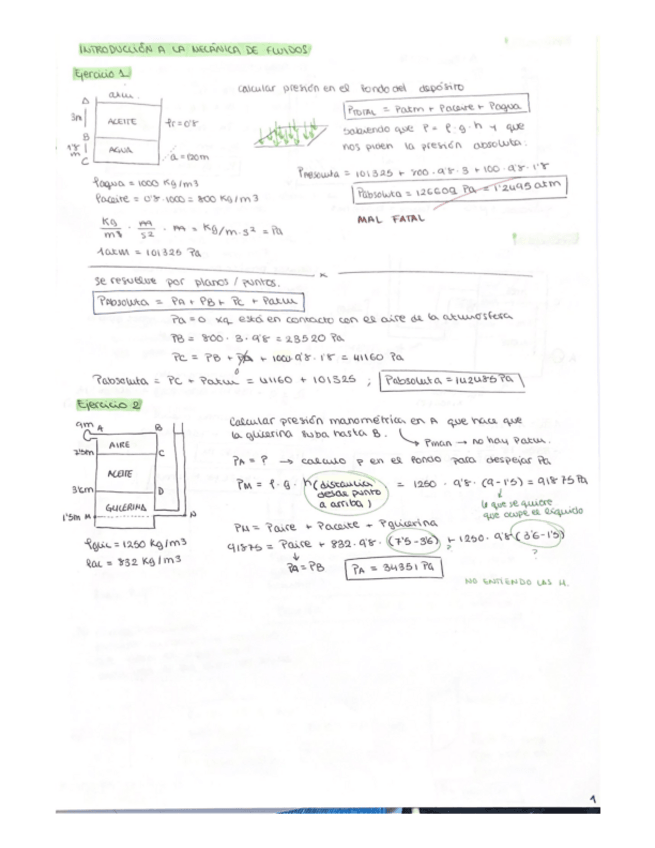 INTRODUCCIÓN A LA MECÁNICA DE FLUIDOS
Ejercicio 1
atm.
A
3m
B
1'8 m
C
ACEITE
AGUA
ρr = 0'8
Calcular presión en el fondo del depósito
PTOTAL = Patm + Paceite + Pagua
Sabiendo que P = ρ·g·h y que
nos piden la presión absoluta:
ρagua = 1000 Kg/m3
ρaceite = 0'8·1000 = 800 Kg/m3
Pabsoluta = 101325 + 800·9'8·3 + 100·9'8·1'8
Pabsoluta = 126609 Pa = 1'2495 atm
MAL FATAL
Kg/m3 · m/s2 · m = Kg/m·s2 = Pa
1atm = 101325 Pa
Se resuelve por planos / puntos.
Pabsoluta = PA + PB + PC + Patm
PA = 0 xq está en contacto con el aire de la atmósfera
PB = 800 · 3 · 9'8 = 23520 Pa
PC = PB + PA + 1000·9'8·1'8 = 41160 Pa
0
Pabsoluta = PC + Patm = 41160 + 101325 ; Pabsoluta = 142485 Pa
Ejercicio 2
9m A B
AIRE
7'5m C
ACEITE
3'6m D
GLICERINA
1'5m M N
Calcular presión manométrica en A que hace que
la glicerina suba hasta B.
Pman → no hay Patm.
PA = ? → calculo P en el fondo para despejar PA
PM = ρ · g · h (distancia desde punto a arriba) = 1250 · 9'8 · (9-1'5) = 91875 Pa
lo que se quiere
que ocupe el líquido
PM = Paire + Paceite + Pglicerina
91875 = Paire + 832·9'8· (7'5-3'6) + 1250·9'8 (3'6-1'5)
?
?
PA = PB
PA = 34351 Pa
ρglic = 1250 Kg/m3
ρac = 832 Kg/m3
NO ENTIENDO LAS H.
1